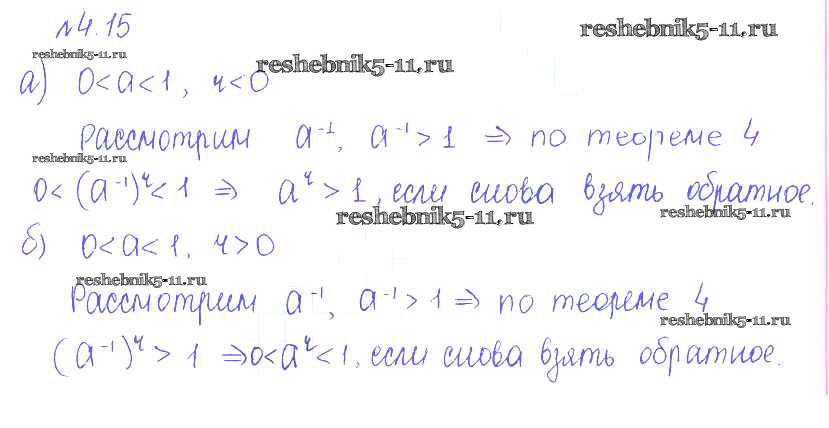 №4.15
reshebnik5-11.ru
reshebnik5-11.ru
reshebnik5-11.ru
а) 0<a<1, ч<0
Рассмотрим a⁻¹, a⁻¹>1 ⇒ по теореме 4
reshebnik5-11.ru
0<(a⁻¹)ᶣ<1 ⇒ aᶣ>1, если снова взять обратное.
reshebnik5-11.ru
reshebnik5-11.ru
б) 0<a<1, ч>0
reshebnik5-11.ru
Рассмотрим a⁻¹, a⁻¹>1 ⇒ по теореме 4
reshebnik5-11.ru
(a⁻¹)ᶣ>1 ⇒0<aᶣ<1, если снова взять обратное.